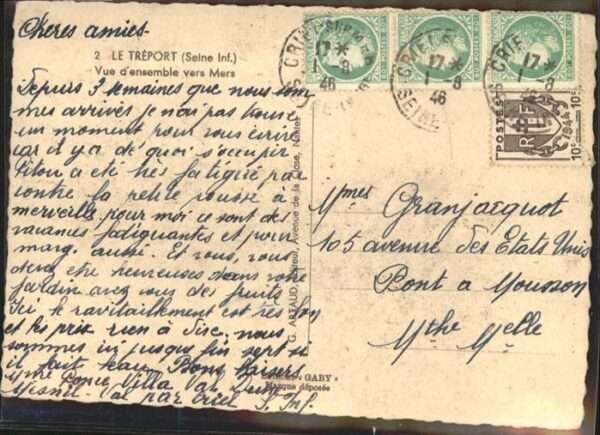 Chères amies
2 LE TRÉPORT (Seine Inf.)
Vue d'ensemble vers Mers
Depuis 3 semaines que nous som
mes arrivés je n'ai pas trouvé
un moment pour vous écrire
car il y a de quoi s'occuper
a été très fatigué par
contre la petite pousse à
merveille pour moi ce sont des
vacances fatigantes et pour
marg. aussi. Et vous, vous
devez être heureuses dans votre
jardin avec vous des fruits
Ici le ravitaillement est très bon
et les prix rien à dire, nous
sommes ici jusque fin sept si
il fait beau. Bons baisers
Mme Villa
Mesnil-Val par Criel S. Inf.
G. ARTAUD, Éditeur, Avenue de la Close, Nantes
"GABY"
Marque déposée
CRIEL S
17 *
1 - 8
46
CRIEL S
17 *
1 - 8
46
SEINE
CRIE
17 *
1 - 8
46
POSTES
RF
1944
10c
10c
Mmes Granjacquot
105 avenue des États Unis
Pont à Mousson
Mthe Melle